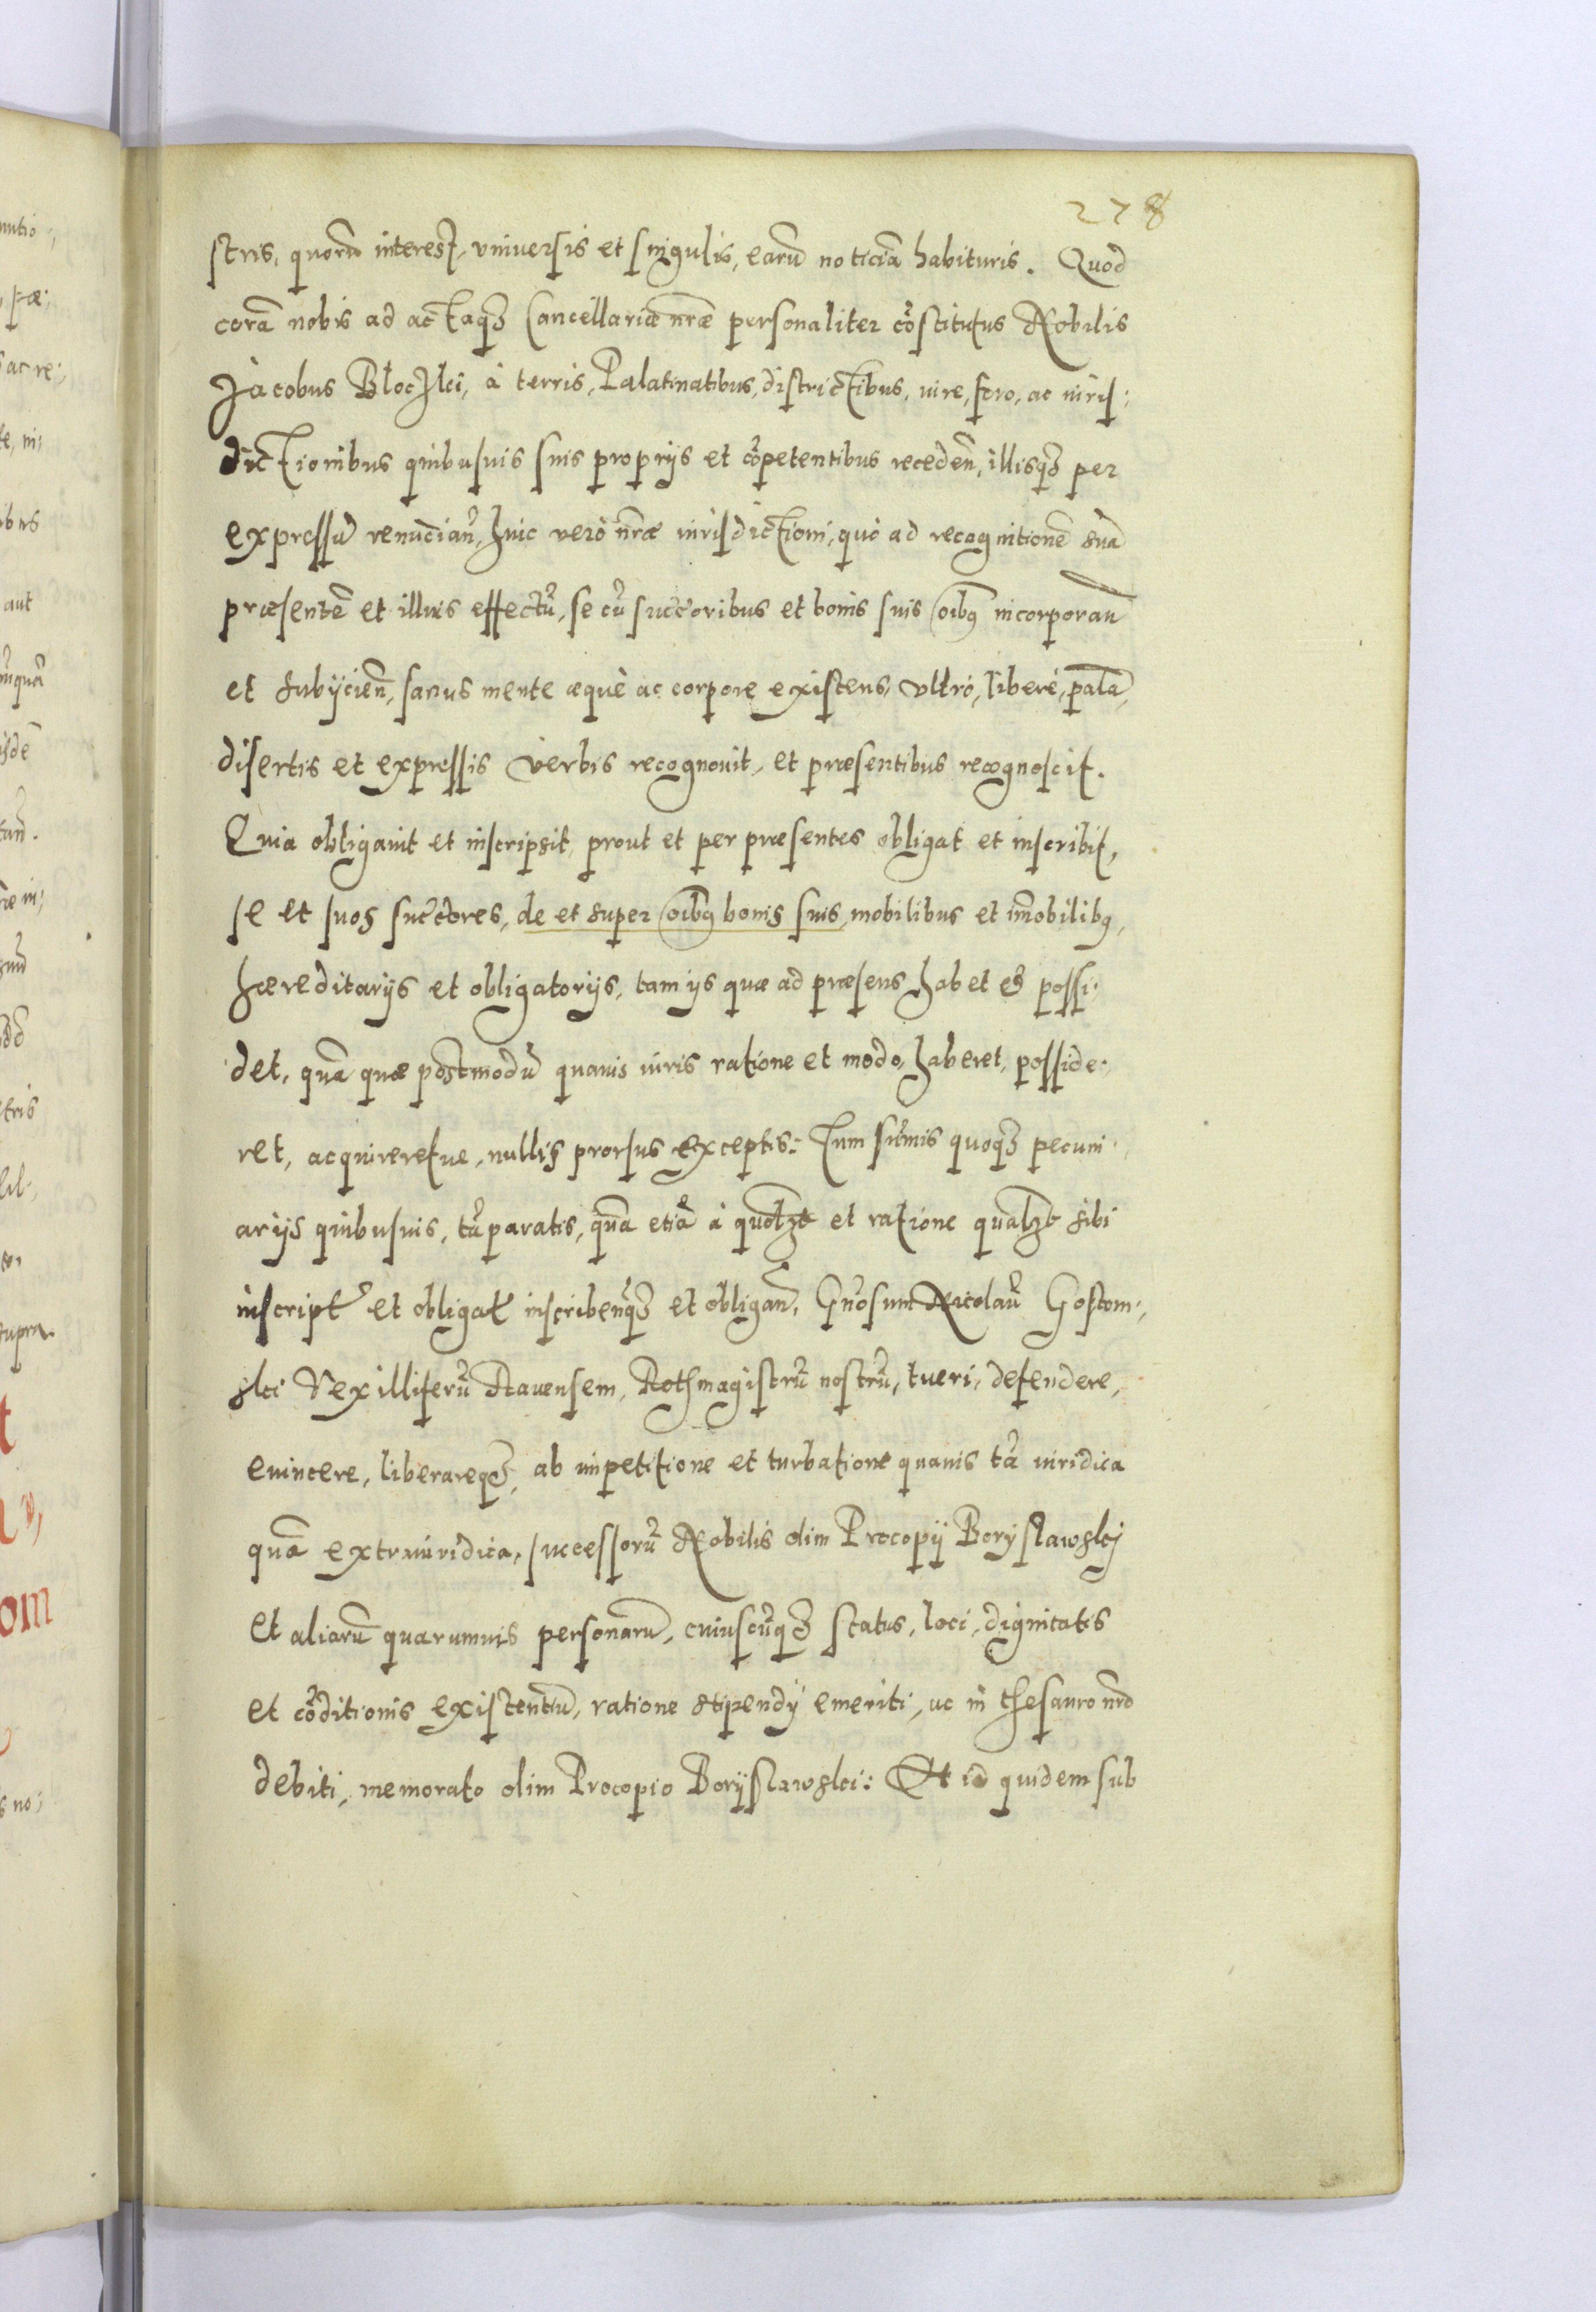 278
stris, quorũ interest, vniuersis et singulis, earũ noticiã habituris. Quod
corã nobis ad actaqз Cancellariæ nr̃æ personaliter cõstitutus Nobilis
Jacobus Blocżki, à terris, Palatinatibus, districtibus, iure, foro, ac iuris:
dictionibus quibusuis suis proprijs et cõpetentibus recedeñ, illisqз per
expressũ renũciañ, huic verò nr̃æ iurisdictioni, quò ad recognitionẽ suã
præsentẽ et illius effectũ, se cũ succ̃oribus et bonis suis oĩbꝰ incorporañ
et subijcieñ, sanus mente æquè ac corpore existens, vltrò, liberè, palã,
disertis et expressis verbis recognouit, et præsentibus recognoscit.
Quia obligauit et inscripsit, prout et per præsentes obligat et inscribit,
se et suos succ̃ores, de et super oĩbꝰ bonis suis, mobilibus et im̃obilibꝰ,
hæreditarijs et obligatorijs, tam ijs quæ ad præsens habet et possi:
det, quã quæ postmodũ quauis iuris ratione et modo, haberet, posside:
ret, acquireretue, nullis prorsus exceptis: Tum sũmis quoqз pecuni:
arijs quibusuis, tũ paratis, quã etiã à quolзt et ratione qualзt sibi
inscript̃ et obligat̃ inscribeñqз et obligañ, Gñosum Nicolaũ Gostom:
ski Vexilliferũ Rauensem, Rothmagistrũ nostrũ, tueri, defendere,
euincere, liberareqз, ab impetitione et turbatione quauis tã iuridica
quã extraiuridica, successorũ Nobilis olim Procopij Boryslawskj
et aliarũ quarumuis personarũ, cuiuscũqз status, loci, dignitatis
et cõditionis existentiũ, ratione stipendij emeriti, ac in thesauro nr̃o
debiti, memorato olim Procopio Borijslawski: Et id quidem sub